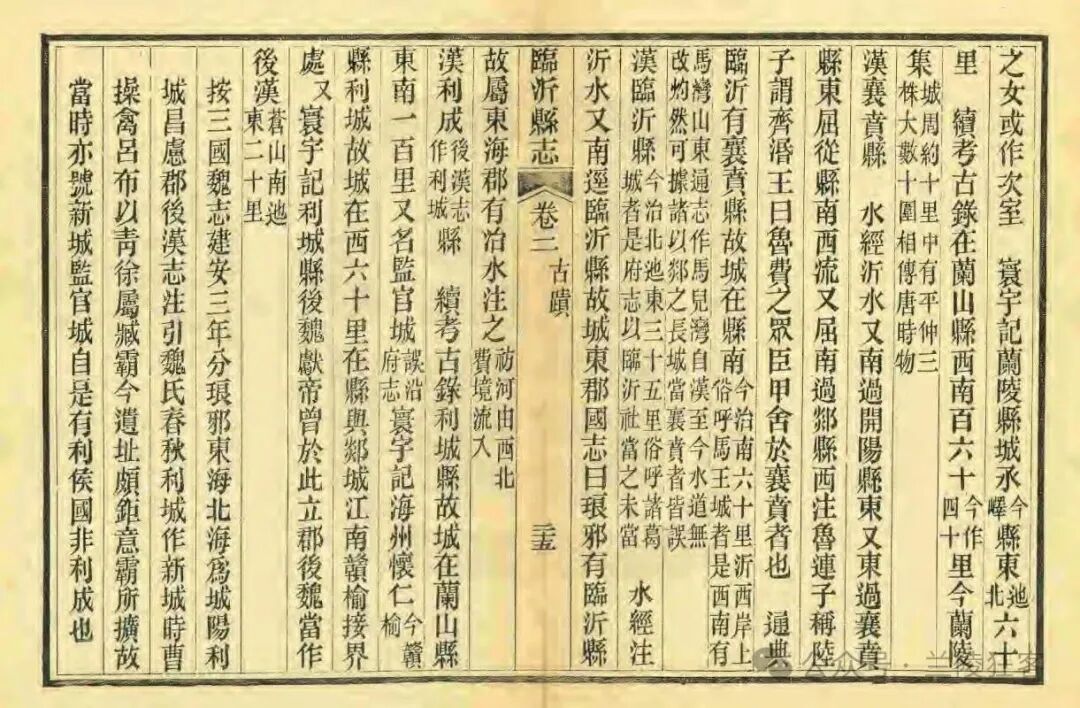 之女或作次室　寰宇記蘭陵縣城承今嶧縣東迆北六十
里　續考古錄在蘭山縣西南百六十今作四十里今蘭陵
集城周約十里中有平仲三
株大數十圍相傳唐時物
漢襄賁縣　水經沂水又南過開陽縣東又東過襄賁
縣東屈從縣南西流又屈南過郯縣西注魯連子稱陸
子謂齊湣王曰魯費之眾臣甲舍於襄賁者也　通典
臨沂有襄賁縣故城在縣南今治南六十里沂西岸上
俗呼馬王城者是西南有
馬灣山東通志作馬兒灣自漢至今水道無
改灼然可據諸以郯之長城當襄賁者皆誤
漢臨沂縣今治北迆東三十五里俗呼諸葛
城者是府志以臨沂社當之未當　水經注
沂水又南逕臨沂縣故城東郡國志曰琅邪有臨沂縣
臨沂縣志　卷二　古蹟　三五
故屬東海郡有治水注之祊河由西北
費境流入
漢利成後漢志作利城縣　續考古錄利城縣故城在蘭山縣
東南一百里又名監官城誤沿府志寰宇記海州懷仁今贛榆
縣利城故城在西六十里在縣與郯城江南贛榆接界
處又寰宇記利城縣後魏獻帝曾於此立郡後魏當作
後漢蒼山南迆
東二十里
按三國魏志建安三年分琅邪東海北海爲城陽利
城昌慮郡後漢志注引魏氏春秋利城作新城時曹
操禽呂布以靑徐屬臧霸今遺址頗鉅意霸所擴故
當時亦號新城監官城自是有利侯國非利成也
公众号 · 兰陵狂客